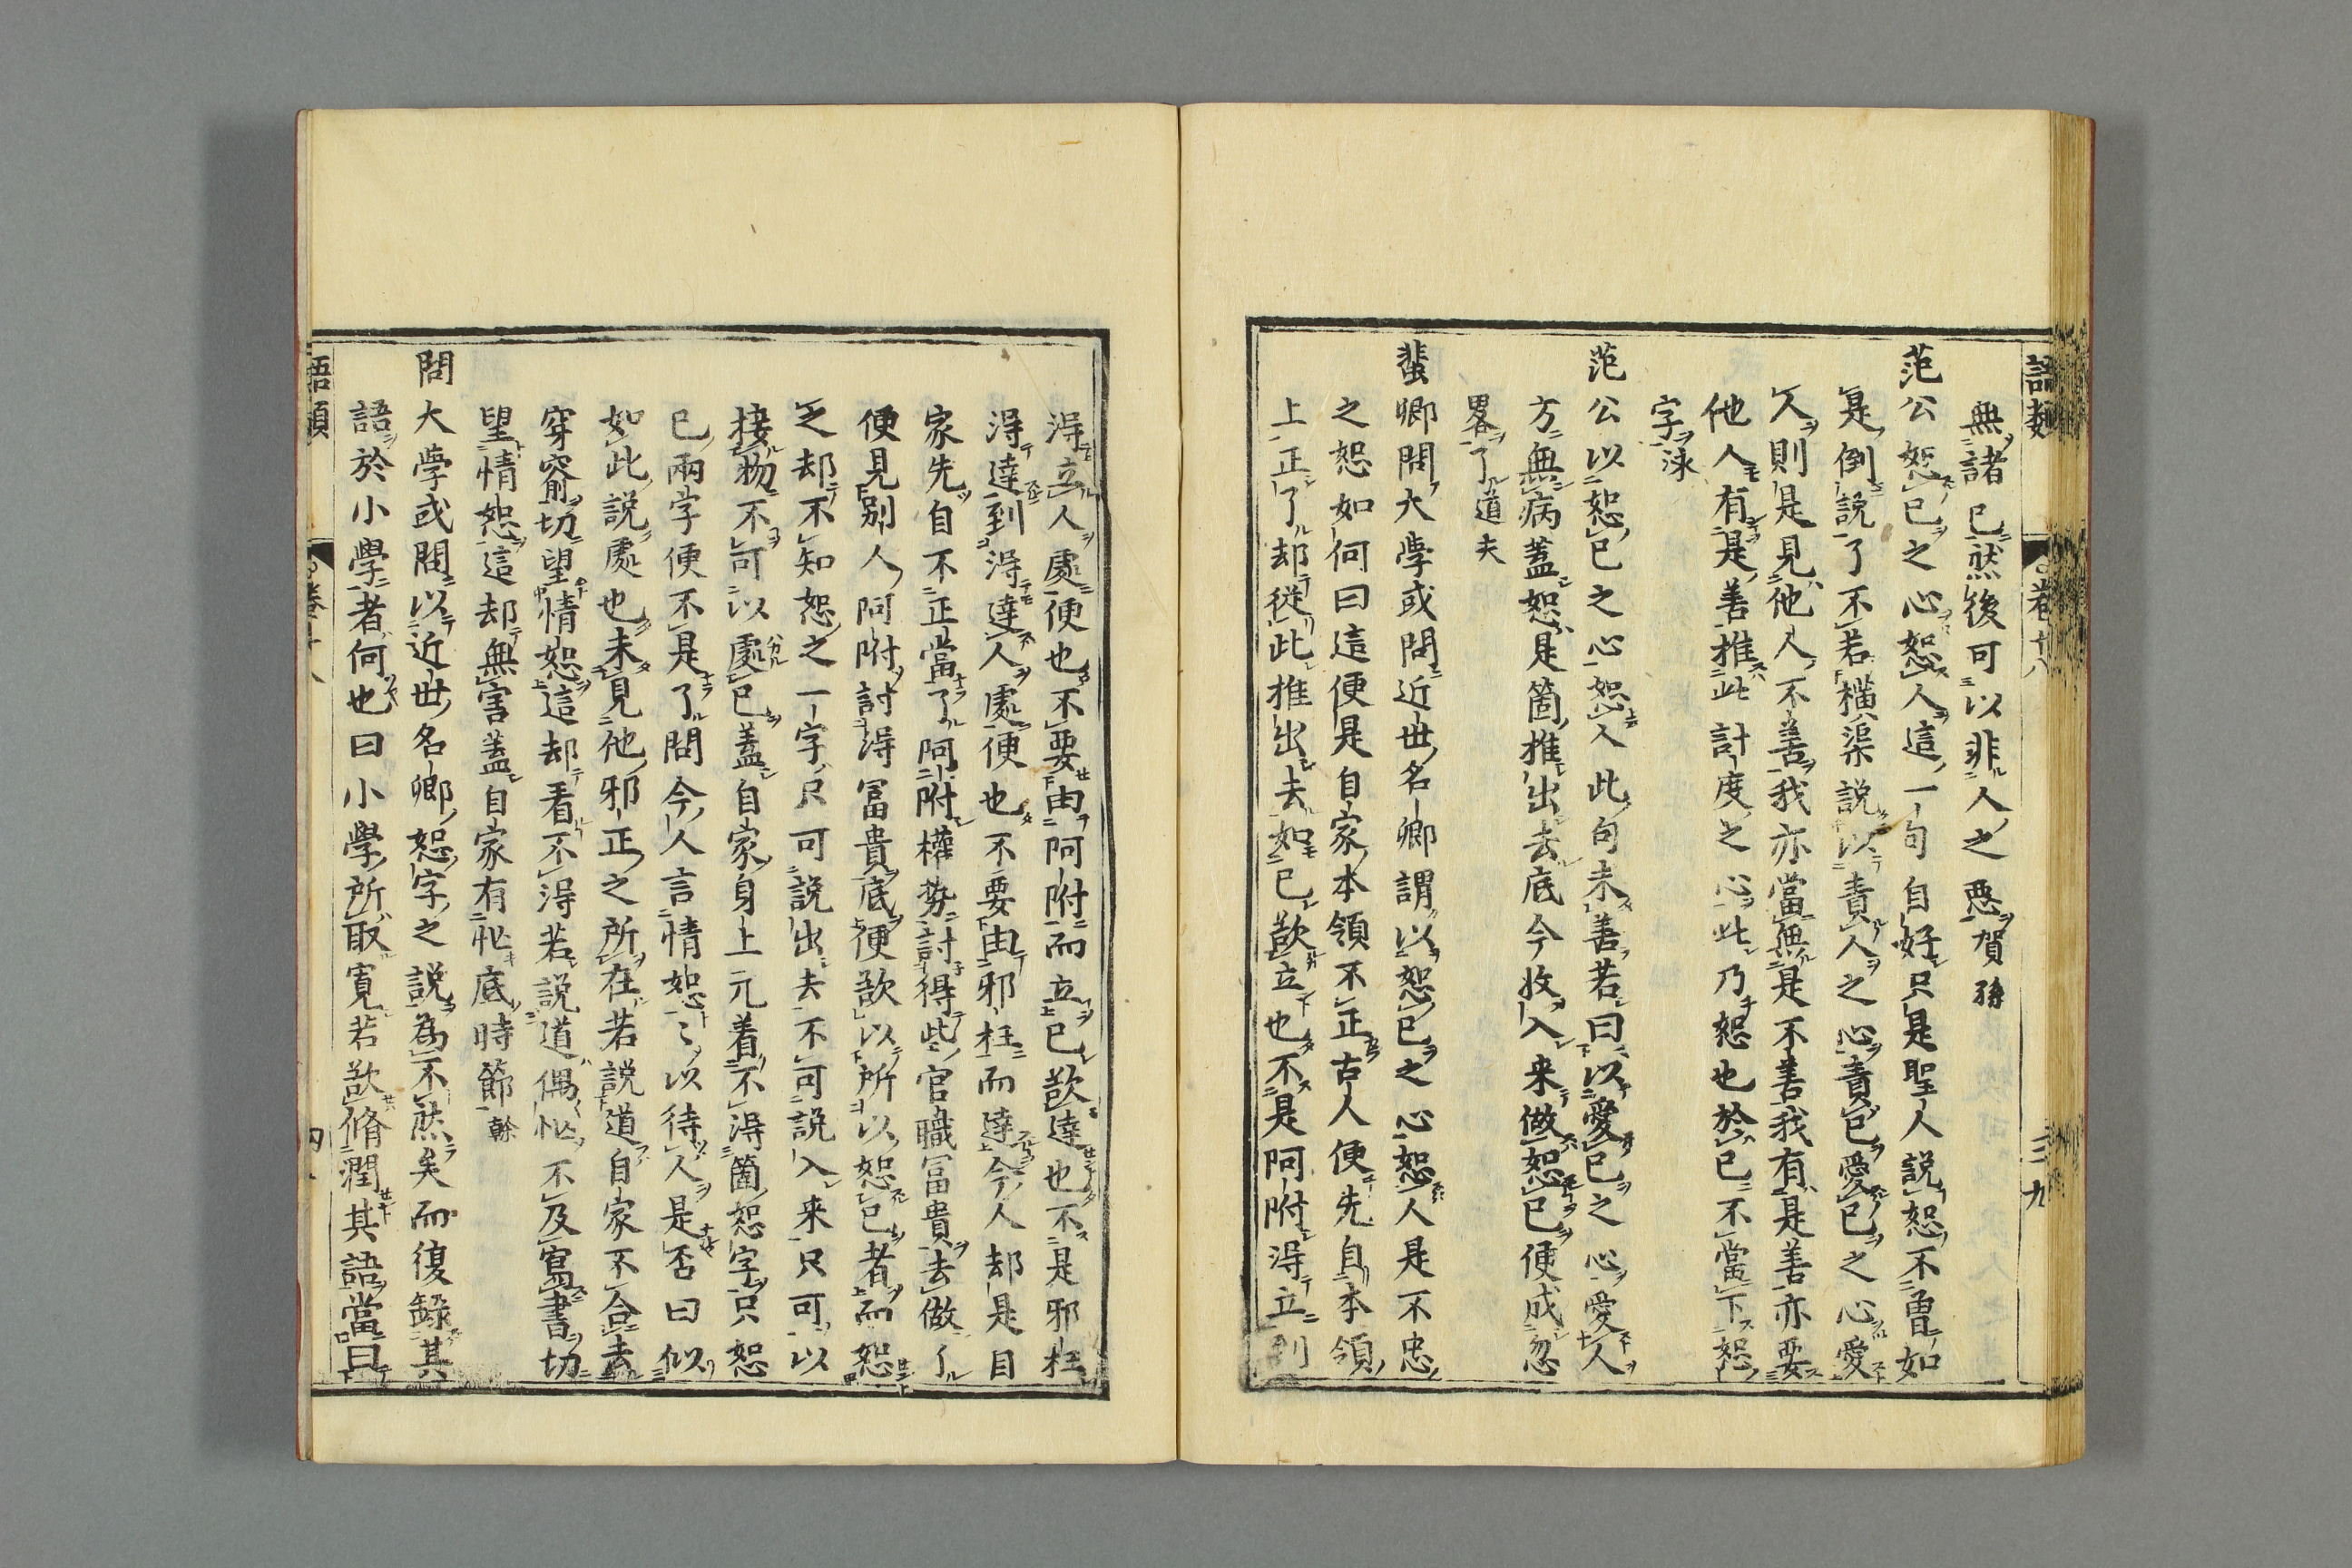 語類 卷十八 三九
無諸己然後可以非人之惡賀孫
范公恕己之心恕人這一句自好只是聖人說恕不曽如
是倒說了不若橫渠說以責人之心責己愛己之心愛
人則是見他人不善我亦當無是不善我有是善亦要
他人有是善推此計度之心此乃恕也於己不當下恕
字泳
范公以恕己之心恕人此句未善若曰以愛己之心愛人
方無病蓋恕是箇推出去底今收入来做恕己便成忽
畧了道夫
蜚卿問大學或問近世名卿謂以恕己之心恕人是不忠
之恕如何曰這便是自家本領不正古人便先自本領
上正了却從此推出去如己欲立也不是阿附得立到
得立人處便也不要由阿附而立己欲達也不是邪枉
得達到得達人處便也不要由邪枉而達今人却是自
家先自不正當了阿附權勢討得些官職富貴去做了
便見別人阿附討得富貴底便欲以所以恕己者而恕
之却不知恕之一字只可說出去不可說入来只可以
接物不可以處己蓋自家身上元着不得箇恕字只恕
已兩字便不是了問今人言情恕〻以待人是否曰似
如此說處也未見他邪正之所在若說道自家不合去
穿窬切望情恕這却看不得若說道偶忙不及寫書切
望情恕這却無害蓋自家有忙底時節榦
問大學或問以近世名卿恕字之說為不然矣而復錄其
語於小學者何也曰小學所取寬若欲脩潤其語當曰
語類 卷十八